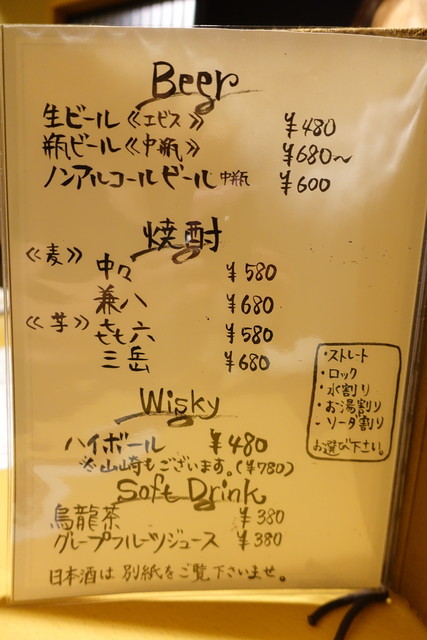 Beer
生ビール《エビス》 ¥480
瓶ビール《中瓶》 ¥680〜
ノンアルコールビール 中瓶 ¥600
焼酎
《麦》
中々 ¥580
兼八 ¥680
《芋》
㐂六 ¥580
三岳 ¥680
・ストレート
・ロック
・水割り
・お湯割り
・ソーダ割り
お選び下さい。
Wisky
ハイボール ¥480
※山崎もございます。(¥780)
Soft Drink
烏龍茶 ¥380
グレープフルーツジュース ¥380
日本酒は別紙をご覧下さいませ。